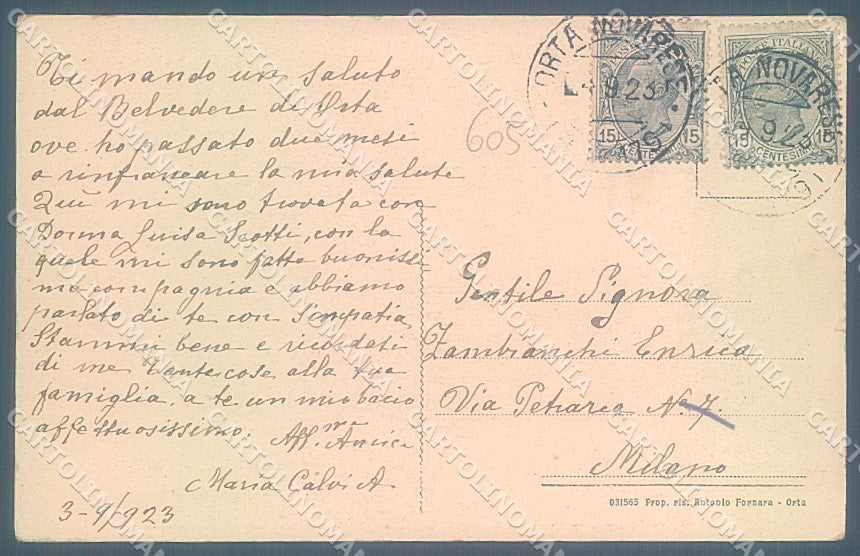 Ti mando un saluto
dal Belvedere di Orta
ove ho passato due mesi
a rinfrancare la mia salute
Qui mi sono trovata con
Donna Luisa Scotti, con la
quale mi sono fatta buonissi
ma compagnia e abbiamo
parlato di te con simpatia
Stammi bene e ricordati
di me Tante cose alla tua
famiglia. a te un mio bacio
affettuosissimo
Aff.ma Amica
Maria Calvi A
3-9/923
605
ORTA NOVARESE
9.23
15 15
CENTESIMI
POSTE ITALIANE
TA NOVARESE
9.2
15 15
CENTESIMI
Gentile Signora
Zambianchi Enrica
Via Petrarca N. 7.
Milano
031565 Prop. ris. Antonio Fornara - Orta
CARTOLINOMANIA